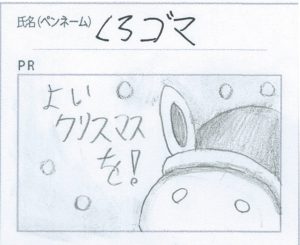 氏名(ペンネーム) くろゴマ
PR
よい
クリスマス
を!